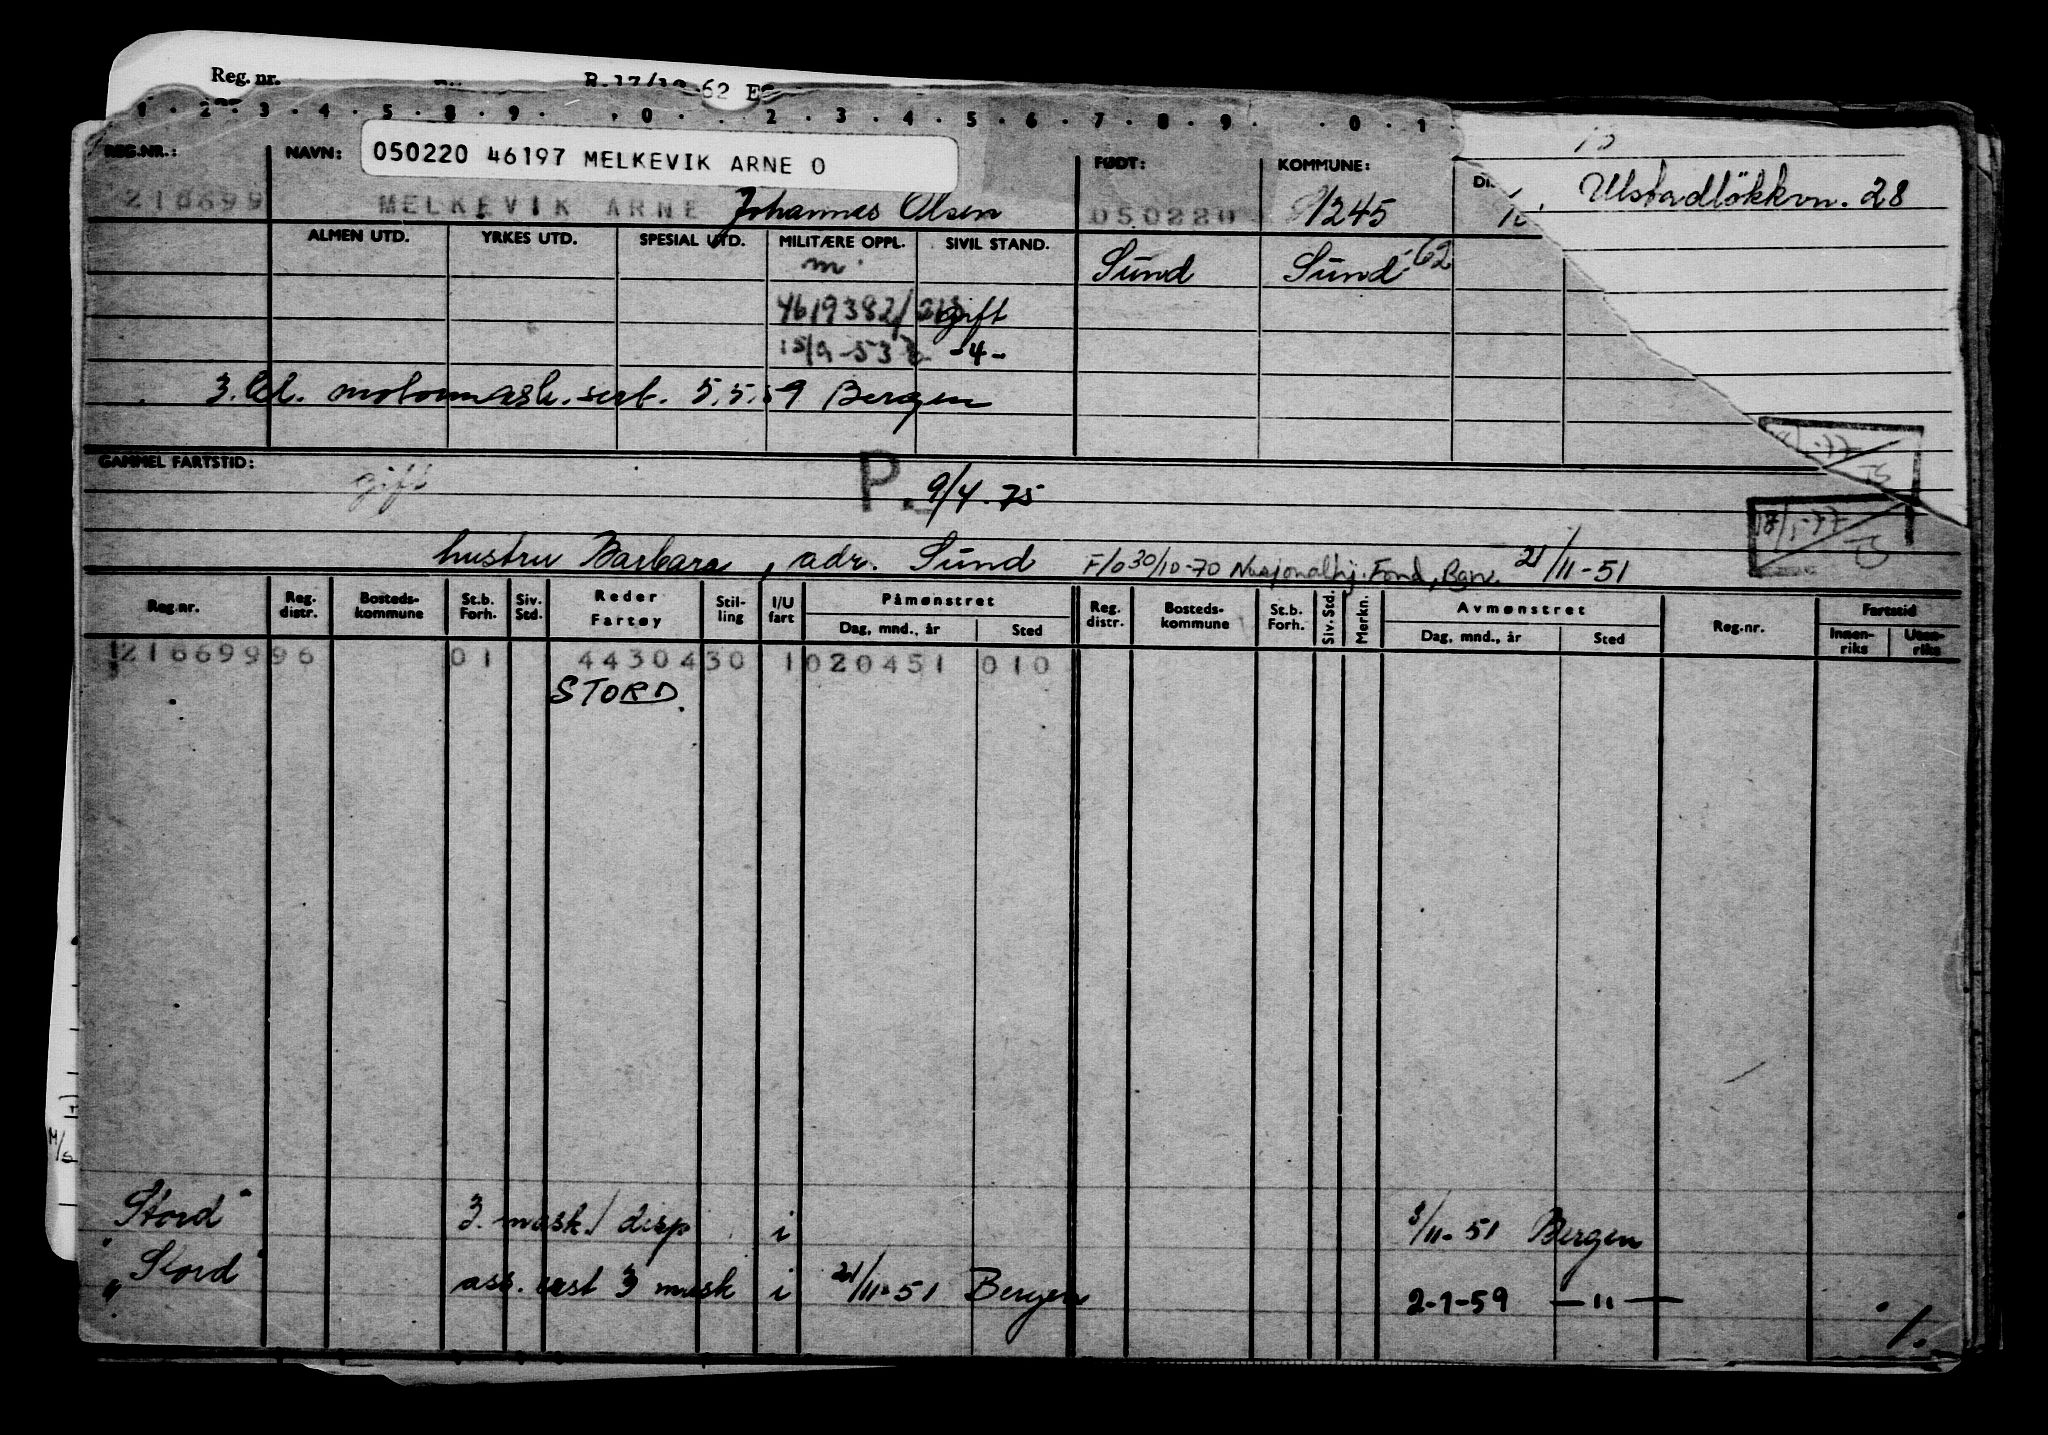 Reg. nr.
62
1 . 2 . 3 . 4 . 5 . 8 . 9 . . 0 . . 2 . 3 . 4 . 5 . 6 . 7 . 8 . 9 . . 0 . 1
REG.NR.: NAVN: 050220 46197 MELKEVIK ARNE O FØDT: KOMMUNE:
Ulstadløkkvn. 28
216699 MELKEVIK ARNE Johannes Olsen 050220 1245
ALMEN UTD. YRKES UTD. SPESIAL UTD. MILITÆRE OPPL. SIVIL STAND.
m Sund Sund -62
4619382/ gift
15/9-53 -4-
3. kl. motormask. sert. 5.5.59 Bergen
GAMMEL FARTSTID: gift P. 9/4.75
18/1-77
hustru Barbara, adr. Sund F/o 30/10-70 Nasjonalhj. Fond, Bgn. 21/11-51
Reg.nr. Reg. distr. Bosteds-kommune St.b. Forh. Siv. Std. Reder Fartøy Stil-ling I/U fart Påmønstret Dag, mnd., år Sted Reg. distr. Bosteds-kommune St.b. Forh. Siv. Std. Merkn. Avmønstret Dag, mnd., år Sted Reg.nr. Fartstid Innen-riks Uten-riks
21669996 01 4430430 1 020451 010
STORD.
"Stord" 3. mask./disp i 3/11-51 Bergen
"Stord" ass. 3 mask i 21/11-51 Bergen 2-1-59 —"—
1.